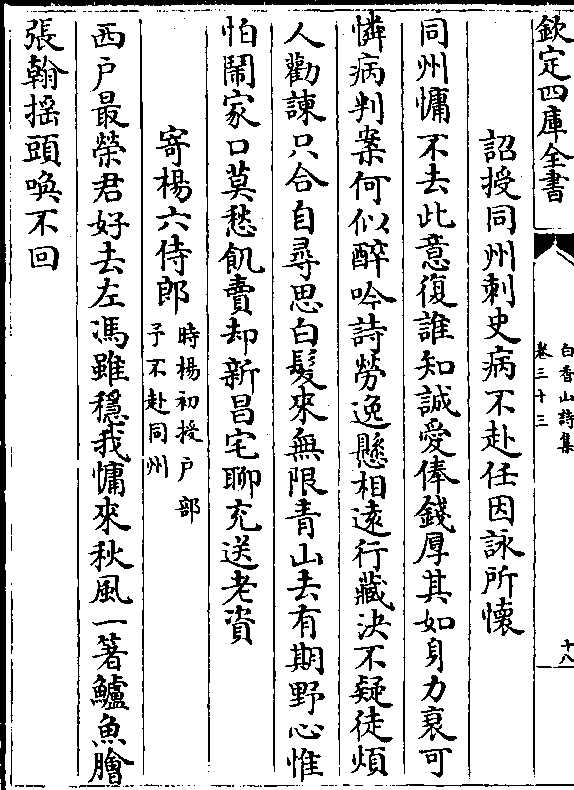 欽定四庫全書
白香山詩集
卷三十三
十八
詔授同州刺史病不赴任因詠所懷
同州慵不去此意復誰知誠愛俸錢厚其如身力衰可
憐病判案何似醉吟詩勞逸懸相遠行藏決不疑徒煩
人勸諫只合自尋思白髮來無限青山去有期野心惟
怕鬧家口莫愁飢賣却新昌宅聊充送老資
寄楊六侍郎時楊初授户部
予不赴同州
西户最榮君好去左馮雖穩我慵來秋風一箸鱸魚膾
張翰搖頭喚不回